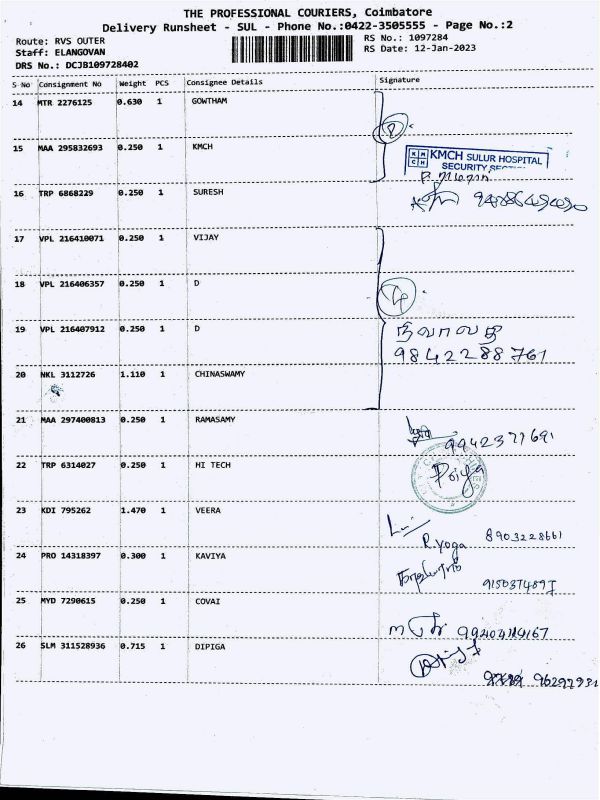 THE PROFESSIONAL COURIERS, Coimbatore
Delivery Runsheet - SUL - Phone No.:0422-3505555 - Page No.:2
Route: RVS OUTER
RS No.: 1097284
Staff: ELANGOVAN
RS Date: 12-Jan-2023
DRS No.: DCJB109728402
S No Consignment No Weight PCS Consignee Details Signature
14 MTR 2276125 0.630 1 GOWTHAM
15 MAA 295832693 0.250 1 KMCH
KMCH SULUR HOSPITAL
SECURITY
16 TRP 6868229 0.250 1 SURESH
17 VPL 216410071 0.250 1 VIJAY
18 VPL 216406357 0.250 1 D
19 VPL 216407912 0.250 1 D
9842288761
20 NKL 3112726 1.110 1 CHINASWAMY
21 MAA 297400813 0.250 1 RAMASAMY
9942377691
22 TRP 6314027 0.250 1 HI TECH
Poiya
23 KDI 795262 1.470 1 VEERA
R.Yoga 8903228661
24 PRO 14318397 0.300 1 KAVIYA
25 MYD 7290615 0.250 1 COVAI
26 SLM 311528936 0.715 1 DIPIGA